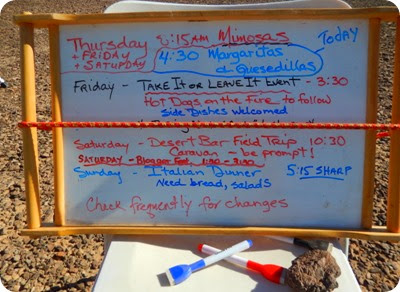 Thursday 8:15AM Mimosas
+ FRIDAY
+ SATURDAY
4:30 Margaritas & Quesedillas
TODAY
Friday - TAKE IT or LEAVE IT EVENT - 3:30
Hot Dogs on the Fire to follow
Side Dishes welcomed
Saturday - Desert Bar Field Trip 10:30
Caravan - be prompt!
SATURDAY - Blogger Fest, 1:30 - 3:30
Sunday - Italian Dinner 5:15 SHARP
Need bread, salads
Check frequently for changes